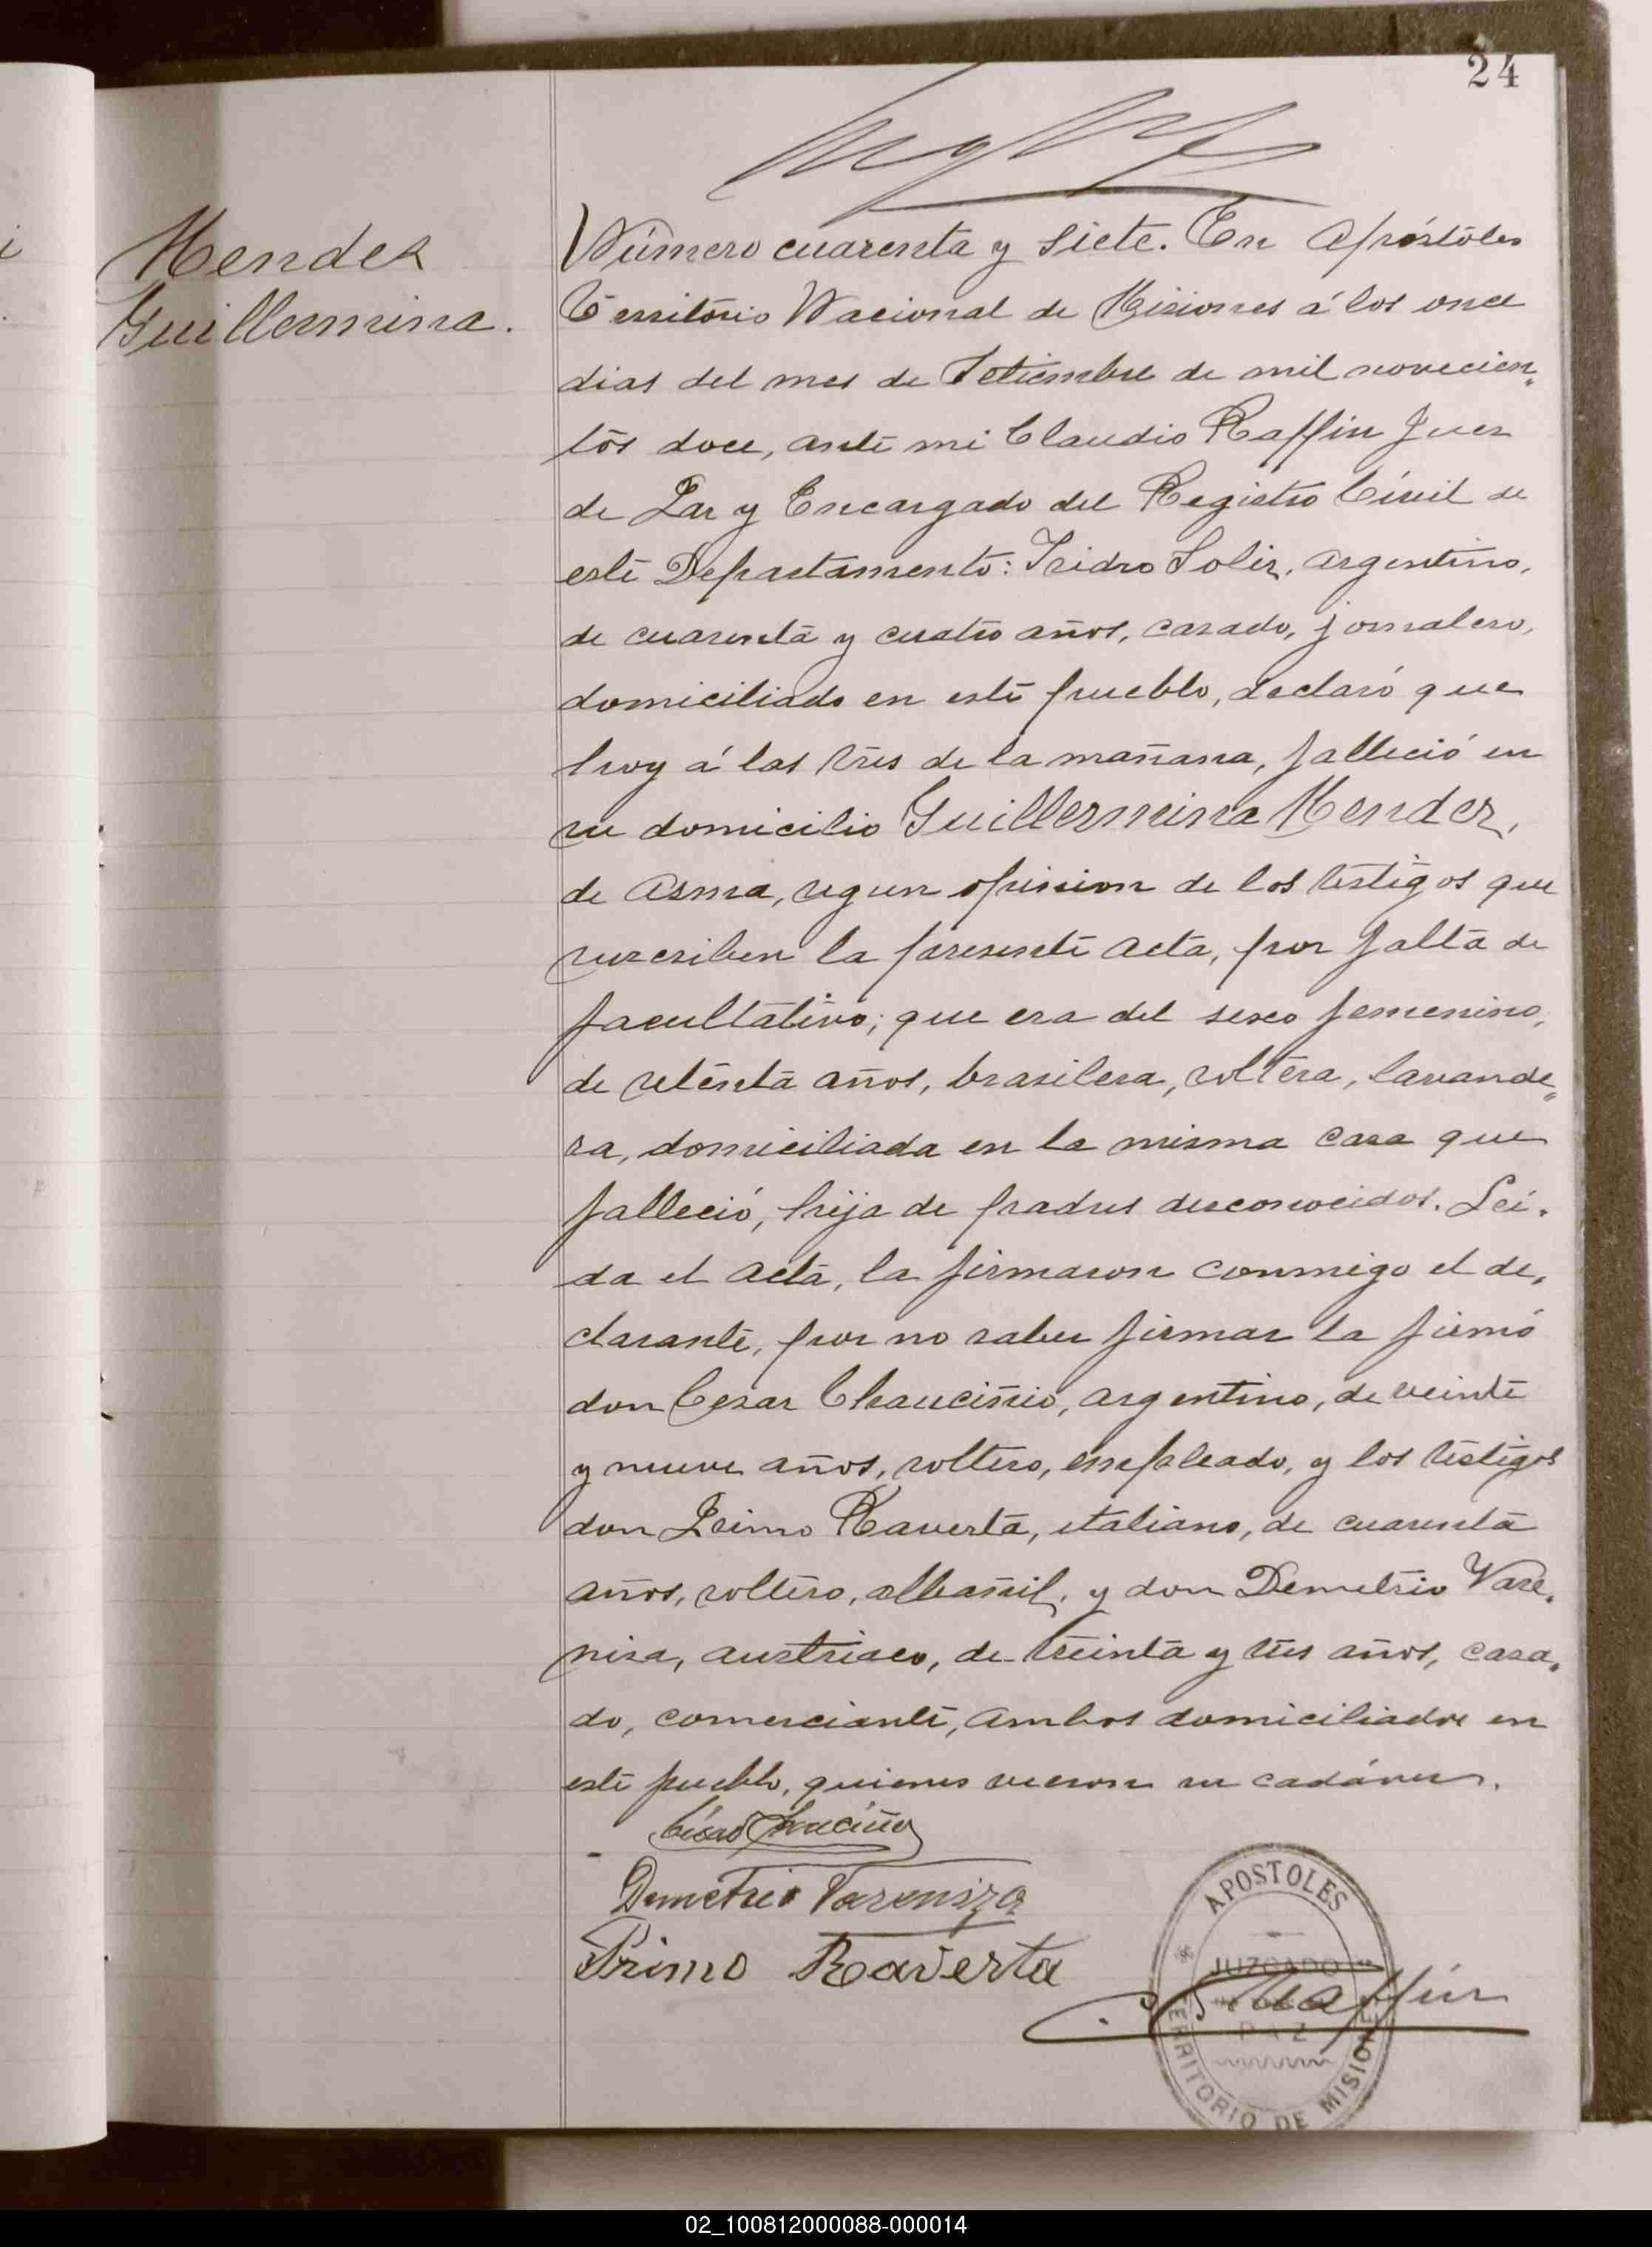 24
Mendez
Guillermina.
Número cuarenta y siete. En Apóstoles
Territorio Nacional de Misiones á los once
dias del mes de Setiembre de mil novecien„
tos doce, ante mi Claudio Raffin Juez
de Paz y Encargado del Registro Civil de
este Departamento: Isidro Solis, argentino,
de cuarenta y cuatro años, casado, jornalero,
domiciliado en este pueblo, declaró que
hoy á las tres de la mañana, falleció en
su domicilio Guillermina Mendez,
de asma, segun opinion de los testigos que
suscriben la presente acta, por falta de
facultativo; que era del sexo femenino,
de setenta años, brasilera, soltera, lavande„
ra, domiciliada en la misma casa que
falleció, hija de padres desconocidos. Lei„
da el acta, la firmaron conmigo el de„
clarante, por no saber firmar la firmó
don Cesar Chauciño, argentino, de veinte
y nueve años, soltero, empleado, y los testigos
don Primo Raverta, italiano, de cuarenta
años, soltero, albañil, y don Demetrio Vare„
nisa, austriaco, de treinta y tres años, casa„
do, comerciante, ambos domiciliados en
este pueblo, quienes vieron su cadáver.
Demetrio Vareniza
Primo Raverta
C. Raffin
APOSTOLES
JUZGADO
DE
PAZ
TERRITORIO DE MISIONES
02_100812000088-000014